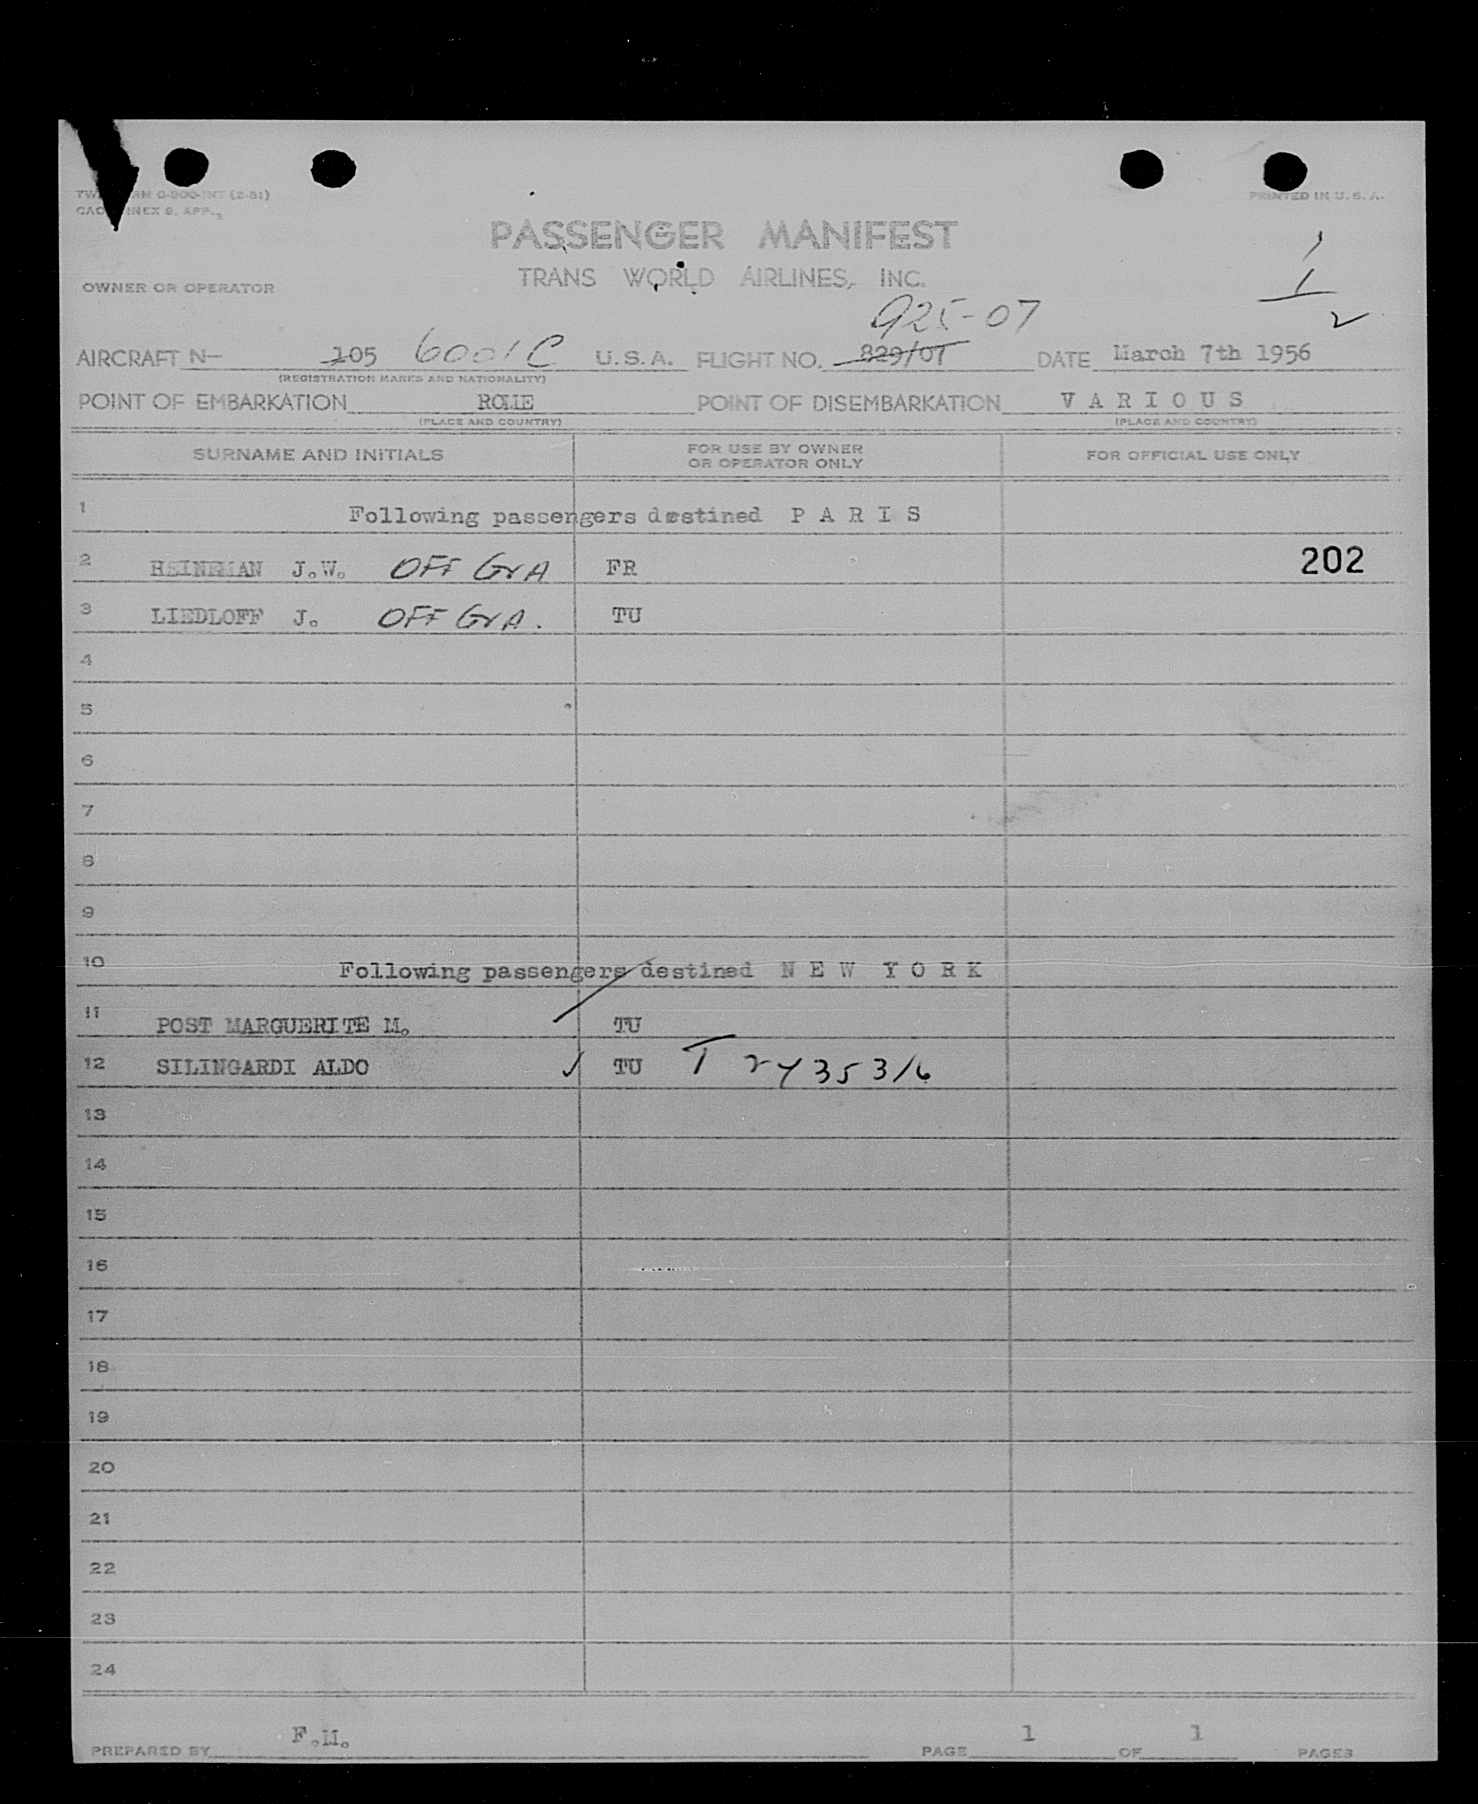 (2-51)
PRINTED IN U. S. A.
PASSENGER MANIFEST
TRANS WORLD AIRLINES, INC.
OWNER OR OPERATOR
1
1
2
925-07
AIRCRAFT N- 105 6001C U.S.A. FLIGHT NO. 829/07 DATE March 7th 1956
(REGISTRATION MARKS AND NATIONALITY)
POINT OF EMBARKATION ROME POINT OF DISEMBARKATION V A R I O U S
(PLACE AND COUNTRY) (PLACE AND COUNTRY)
SURNAME AND INITIALS FOR USE BY OWNER OR OPERATOR ONLY FOR OFFICIAL USE ONLY
1 Following passengers destined P A R I S
2 HEINEMAN J.W. OFF GVA FR 202
3 LIEDLOFF J. OFF GVA. TU
4
5
6
7
8
9
10 Following passengers destined N E W Y O R K
11 POST MARGUERITE M. TU
12 SILINGARDI ALDO ✓ TU T 2435316
13
14
15
16
17
18
19
20
21
22
23
24
PREPARED BY F.M. PAGE 1 OF 1 PAGES